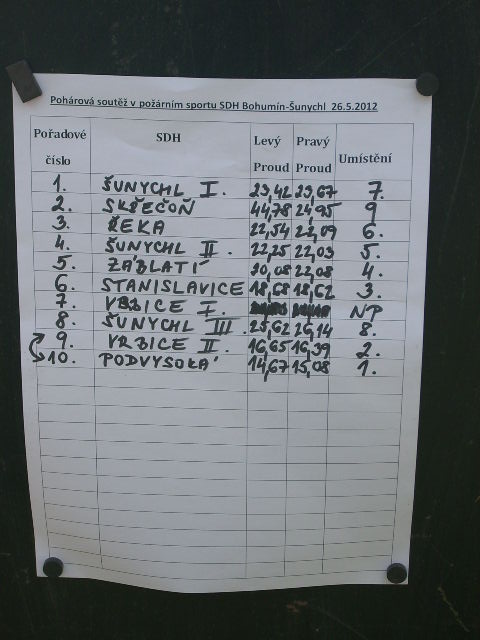 Pohárová soutěž v požárním sportu SDH Bohumín-Šunychl 26.5.2012
Pořadové číslo SDH Levý Proud Pravý Proud Umístění
1. ŠUNYCHL I. 23,42 23,67 7.
2. SKŘEČOŇ 44,78 24,95 9
3. ŘEKA 22,54 22,09 6.
4. ŠUNYCHL II. 22,25 22,03 5.
5. ZÁBLATÍ 20,08 22,08 4.
6. STANISLAVICE 18,68 18,62 3.
7. VRBICE I. NP
8. ŠUNYCHL III 25,62 26,14 8.
9. VRBICE II. 16,65 16,39 2.
10. PODVYSOKÁ 14,67 15,08 1.